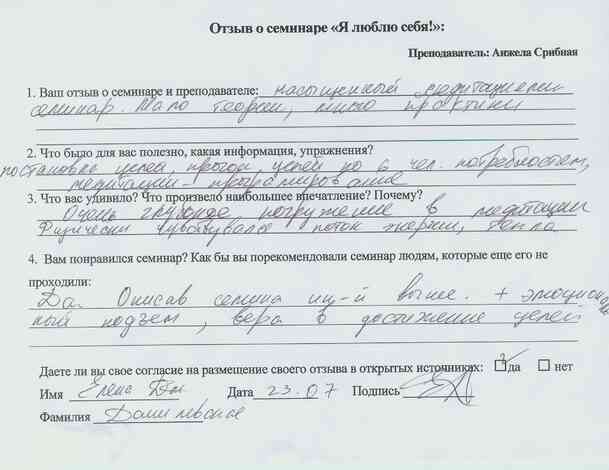 Отзыв о семинаре «Я люблю себя!»:
Преподаватель: Анжела Срибная
1. Ваш отзыв о семинаре и преподавателе: насыщенный медитациями
семинар. Мало теории, много практики
2. Что было для вас полезно, какая информация, упражнения?
постановка целей, прогон целей по 6 чел. потребностям,
медитации-программирование
3. Что вас удивило? Что произвело наибольшее впечатление? Почему?
Очень глубокое погружение в медитации
Физически чувствовался поток энергии, тепла
4. Вам понравился семинар? Как бы вы порекомендовали семинар людям, которые еще его не
проходили:
Да. Описав семина выше. + эмоцион
ный подъем, вера в достижение целей
Даете ли вы свое согласие на размещение своего отзыва в открытых источниках: да нет
Имя Елена Дата 23.07 Подпись
Фамилия